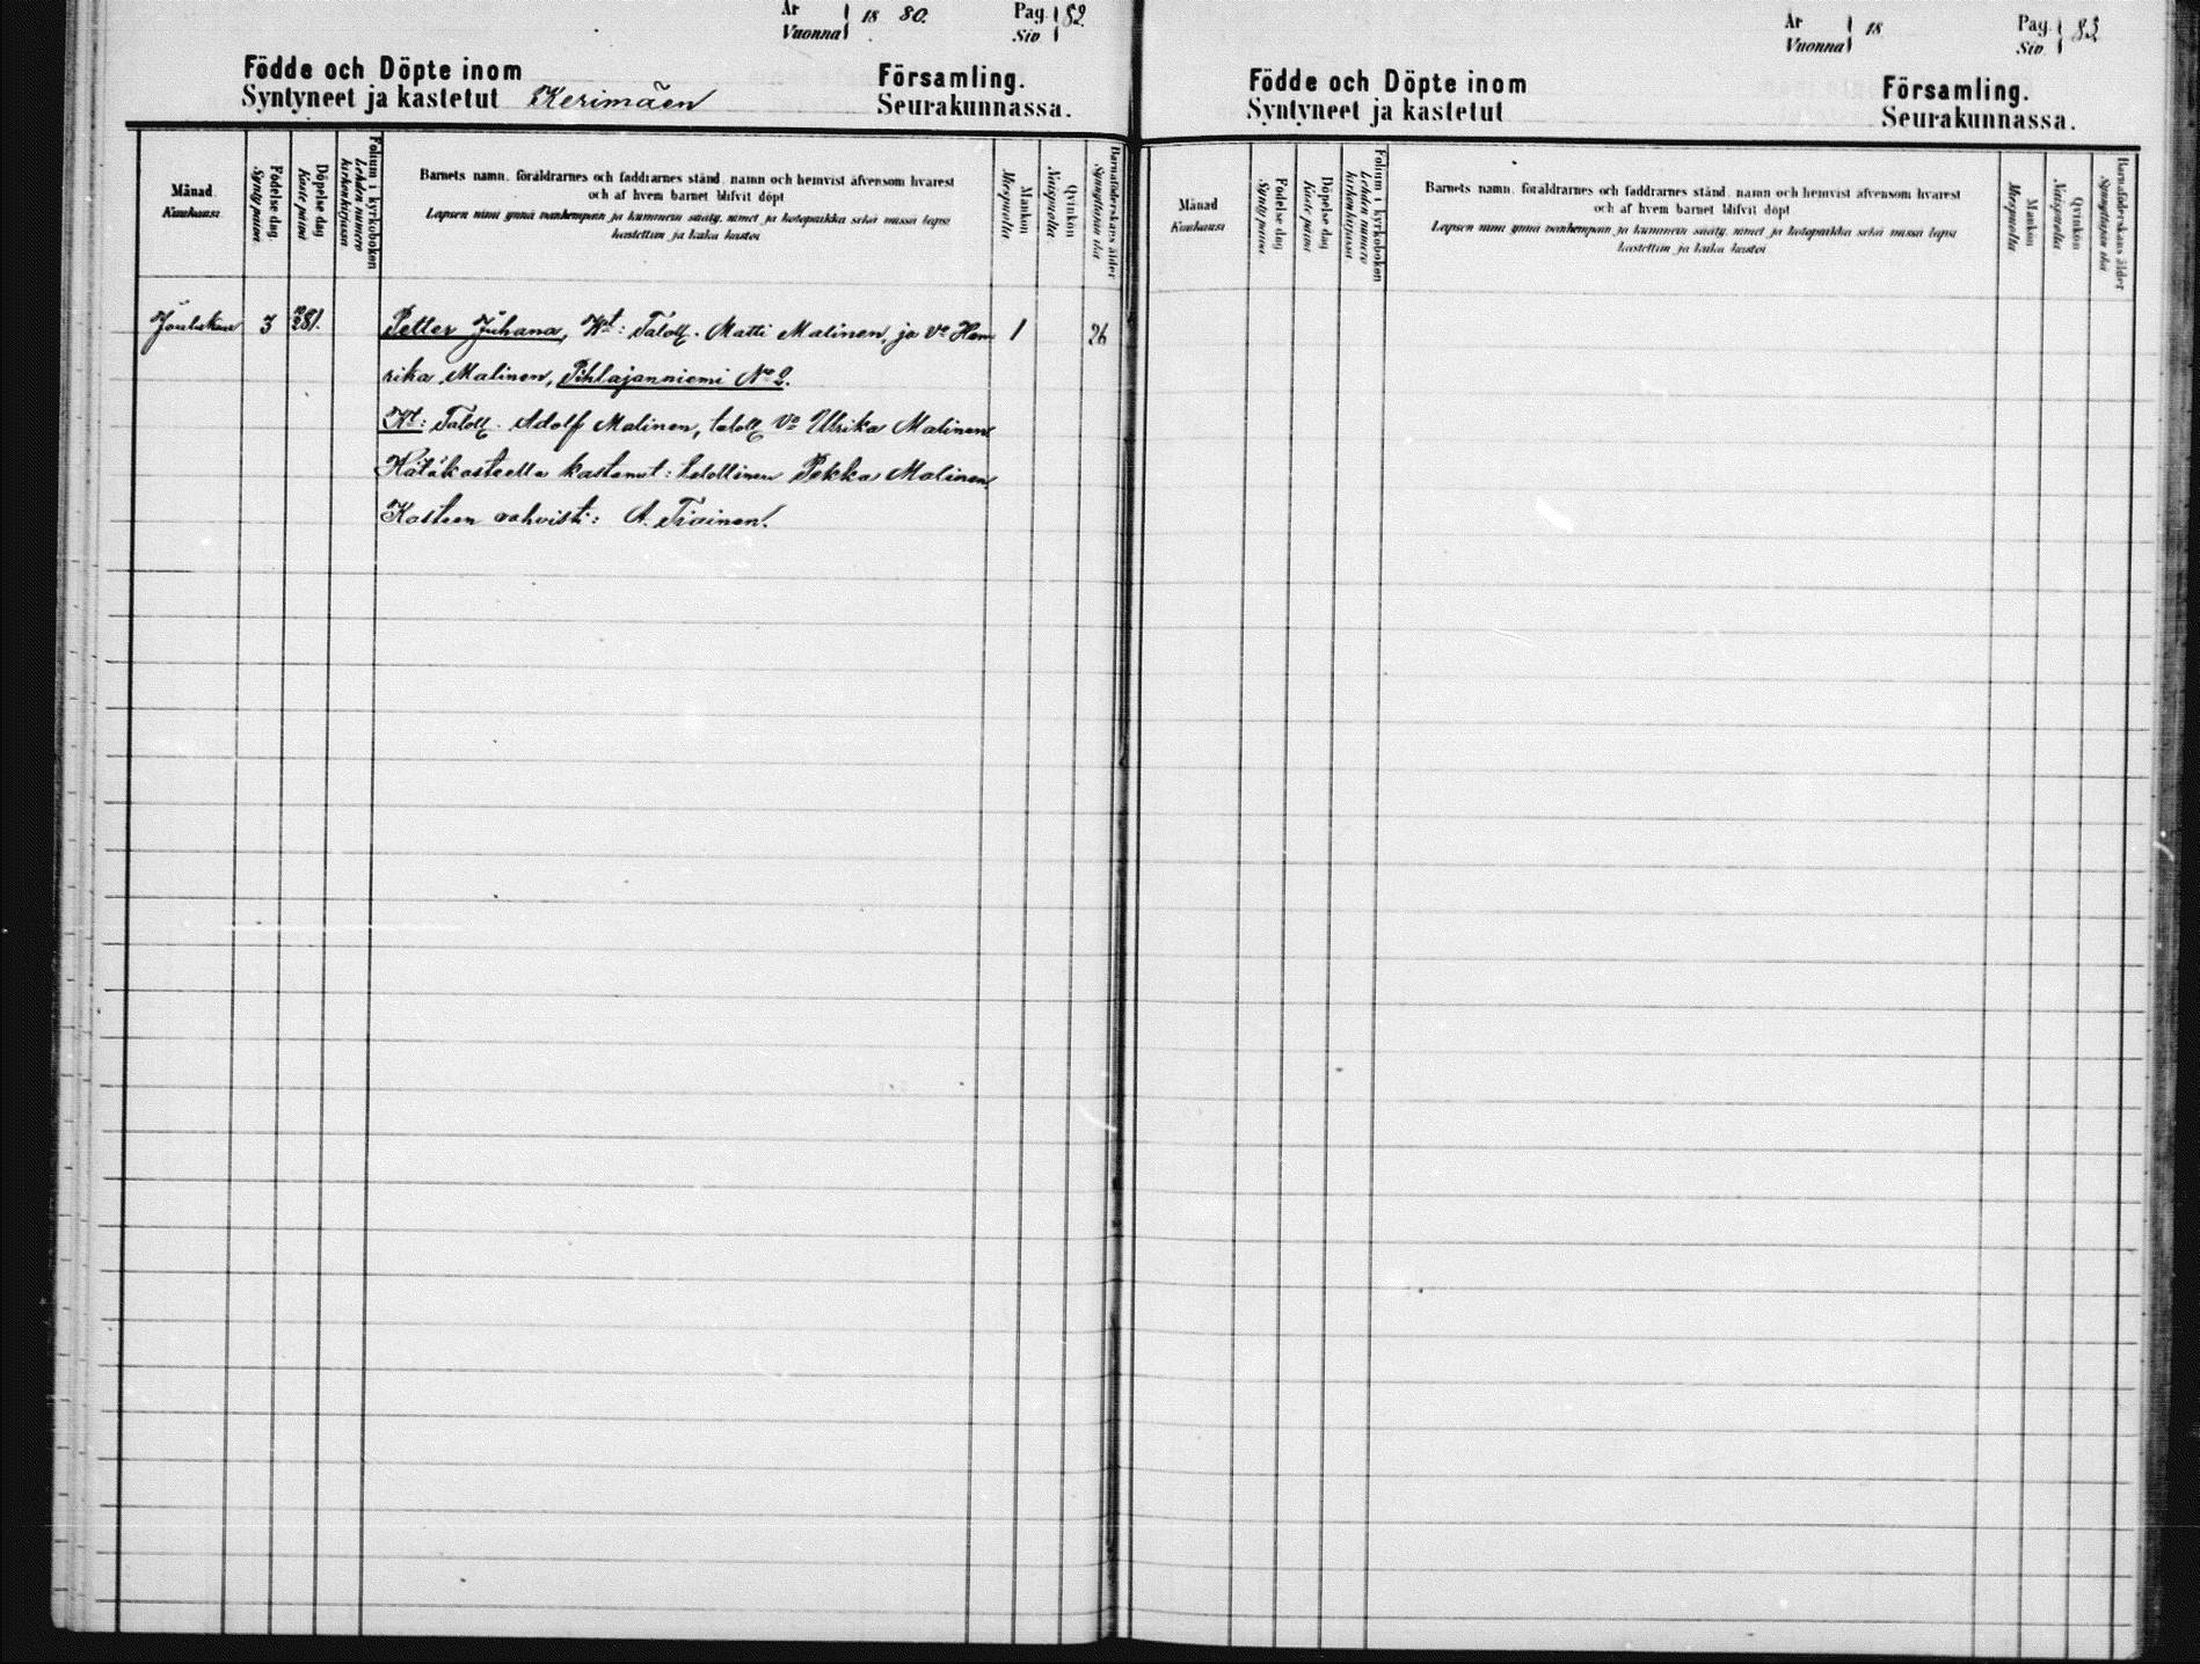 År
Vuonna 18 80.
Pag. 82.
Siv.
Födde och Döpte inom
Syntyneet ja kastetut Kerimäen
Församling.
Seurakunnassa.
Månad.
Kuukausi
Födelse dag.
Synty päivä
Döpelse dag
Kaste päivä
Folium i kyrkoboken
Lehden numero
kirkonkirjassa
Barnets namn, föräldrarnes och faddrarnes stånd, namn och hemvist äfvensom hvarest
och af hvem barnet blifvit döpt
Lapsen nimi ynnä vanhempain ja kummein sääty, nimet ja kotopaikka sekä missä lapsi
kastettiin ja kuka kastoi
Mankön
Miespuolia
Qvinkön
Naispuolia
Barnaföderskans ålder
Synnyttäjän ikä
Joulukuu 3
Petter Juhana, Wt: Taloll. Matti Malinen, ja Vo Hen- 1 26
rika Malinen, Pihlajanniemi No 2.
Kt: Taloll. Adolf Malinen, taloll Vo Ulrika Malinen.
Hätäkasteella kastanut: talollinen Pekka Malinen.
Kasteen vahvisti: A. Tiainen.
År
Vuonna 18
Pag. 83
Siv.
Födde och Döpte inom
Syntyneet ja kastetut
Församling.
Seurakunnassa.
Månad
Kuukausi
Födelse dag
Synty päivä
Döpelse dag
Kaste päivä
Folium i kyrkoboken
Lehden numero
kirkonkirjassa
Barnets namn, föräldrarnes och faddrarnes stånd, namn och hemvist äfvensom hvarest
och af hvem barnet blifvit döpt
Lapsen nimi ynnä vanhempain ja kummein sääty, nimet ja kotopaikka sekä missä lapsi
kastettiin ja kuka kastoi
Mankön
Miespuolia
Qvinkön
Naispuolia
Barnaföderskans ålder
Synnyttäjän ikä